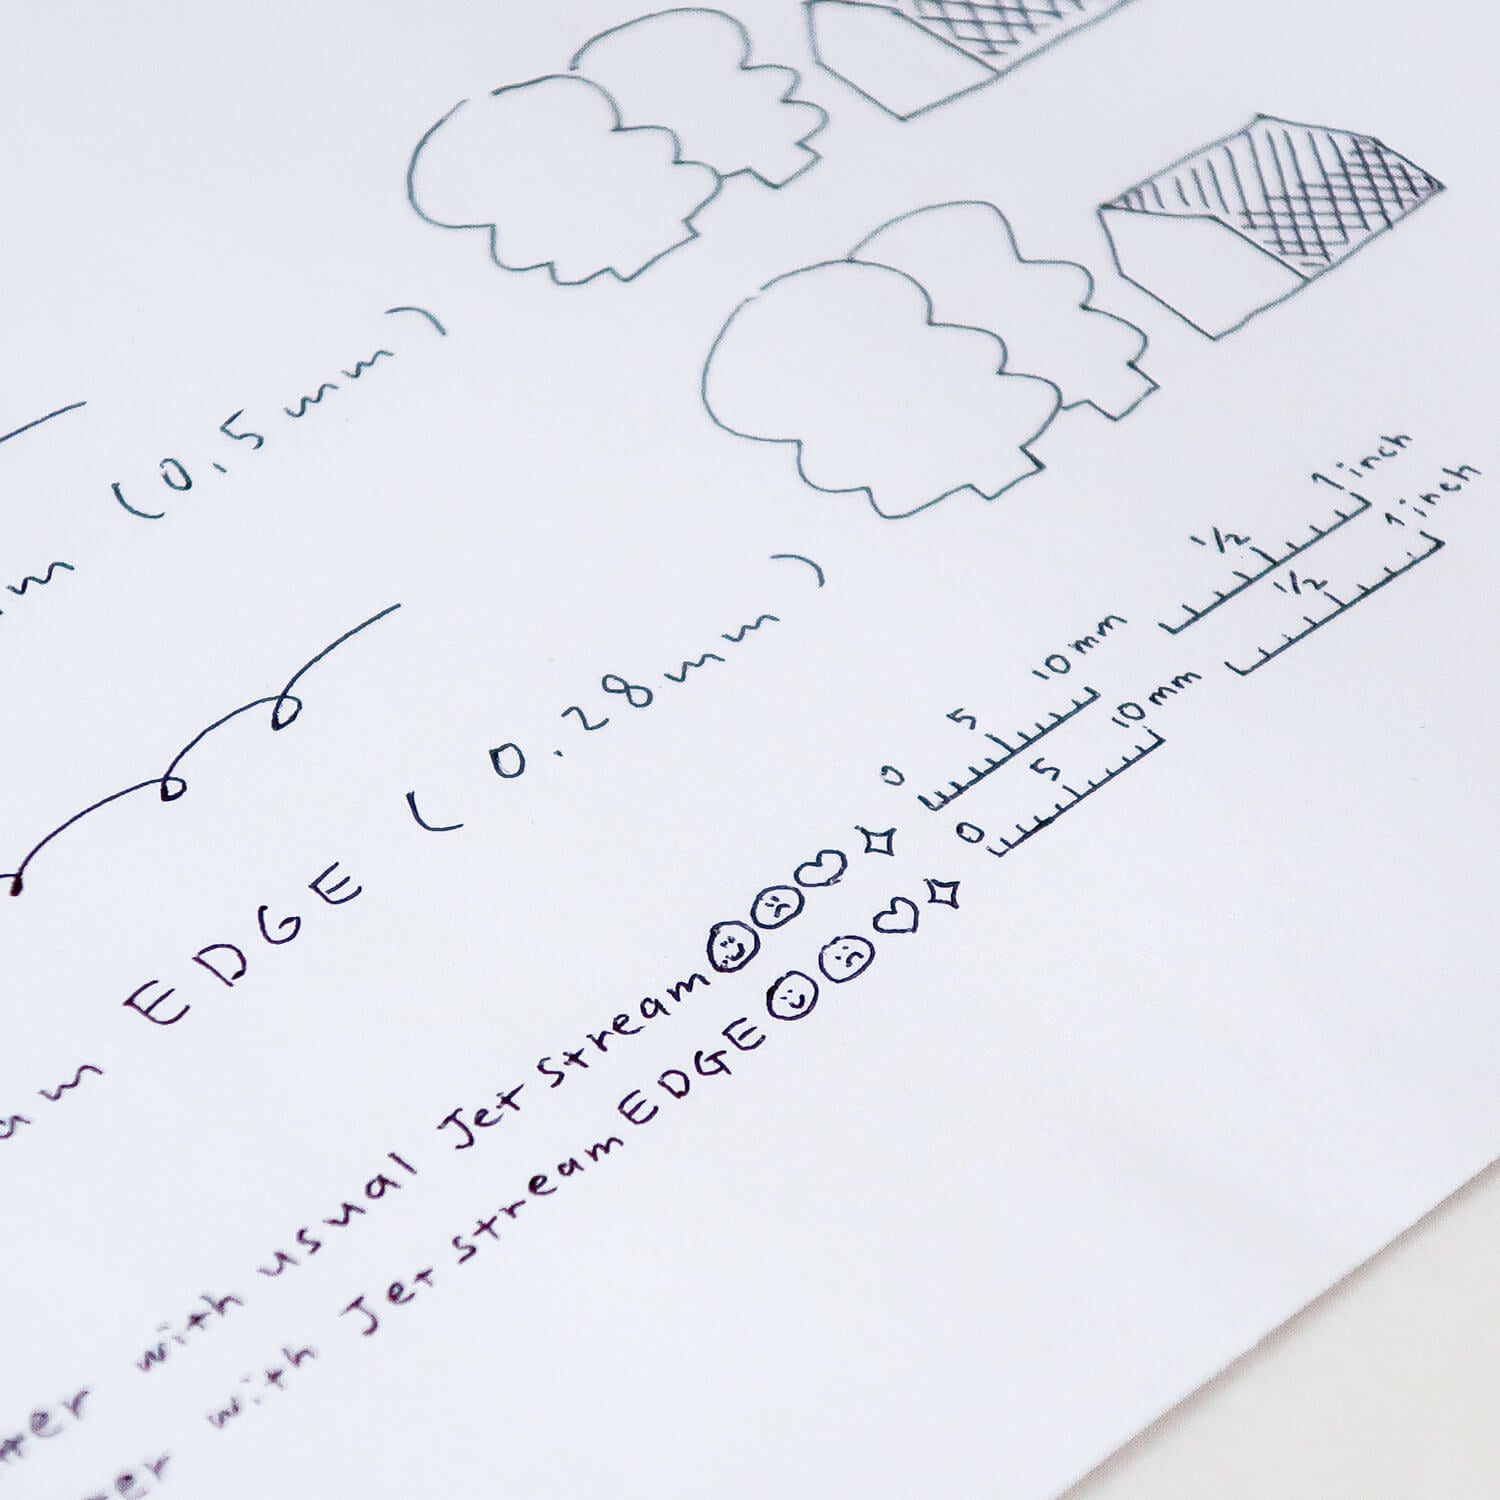 (0.5mm)
EDGE (0.28mm)
with usual Jetstream
with Jetstream EDGE
0 5 10mm
0 5 10mm
1/2 1inch
1/2 1inch